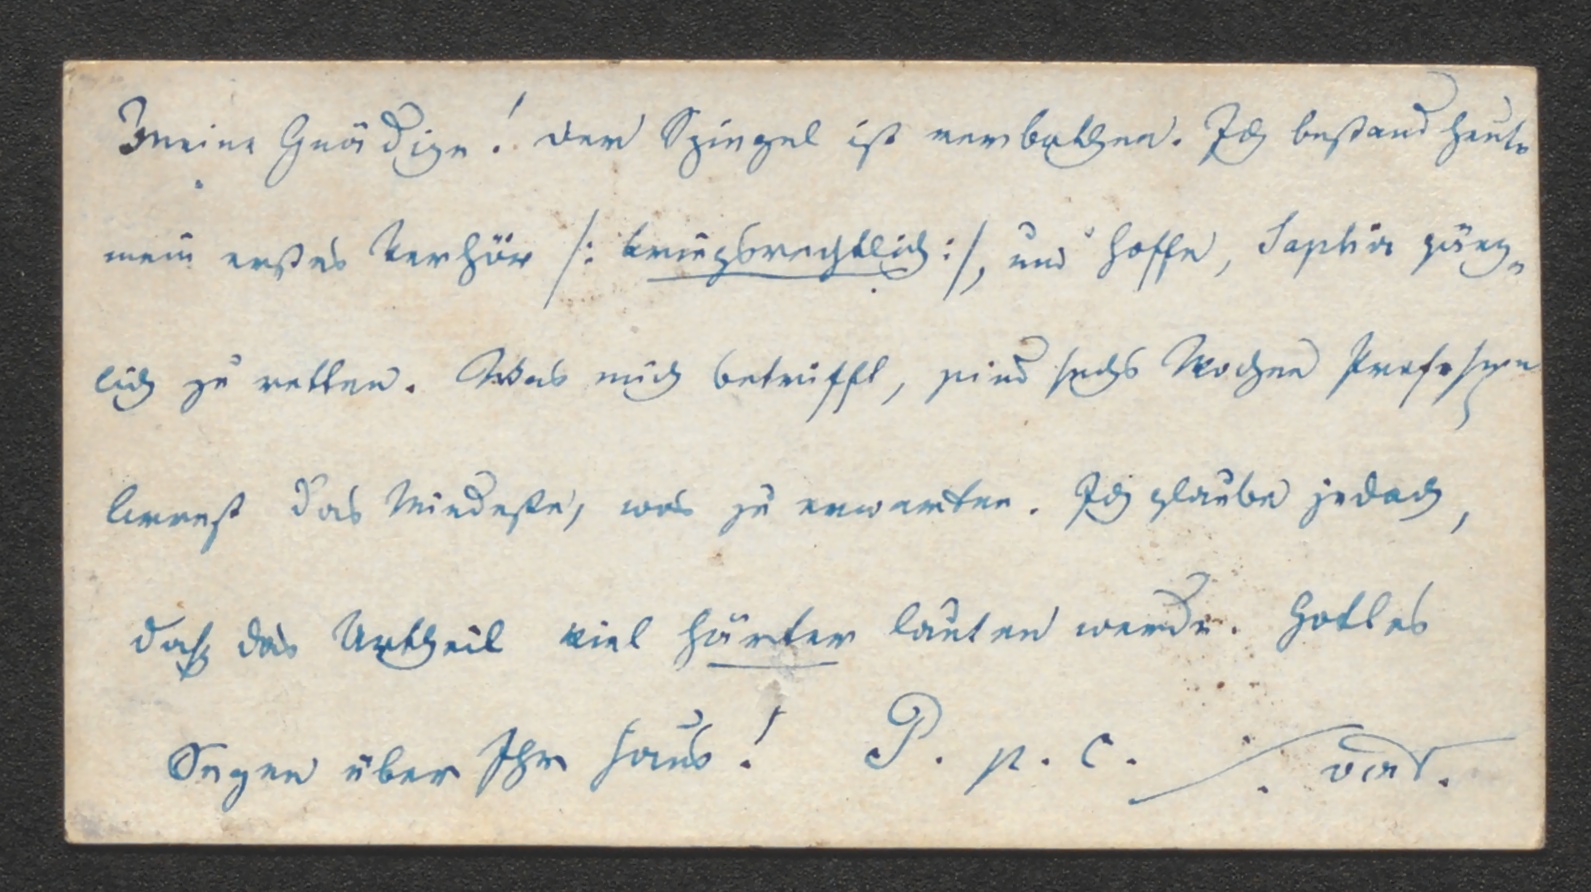 Meine Gnädige! Der Spiegel ist verbothen. Ich bestand heute
mein erstes Verhör /: kriegsrechtlich :/, und hoffe, Saphir gänz„
lich zu retten. Was mich betrifft, sind sechs Wochen Profosen
Arrest das Mindeste, was zu erwarten. Ich glaube jedoch,
daß das Urtheil viel härter lauten werde. Gottes
Segen über Ihr Haus! P. p. c.